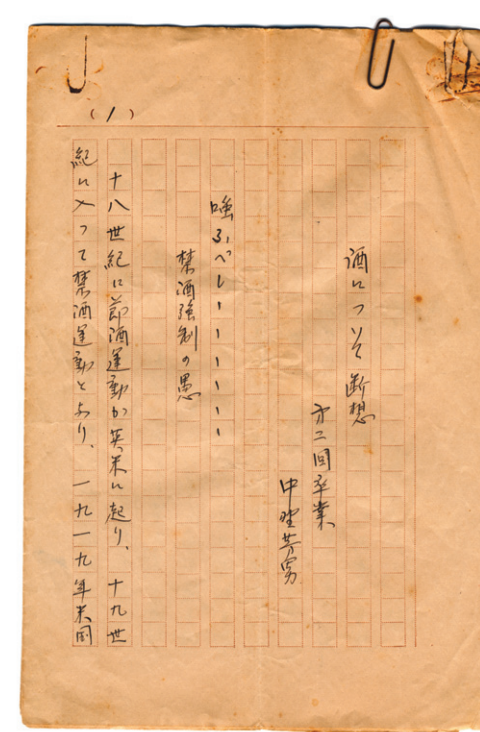 (1)
酒について断想
第二回卒業
中野芳男
嗤ふべし------
禁酒強制の愚
十八世紀に節酒運動が英米に起り、十九世
紀に入つて禁酒運動となり、一九一九年米国